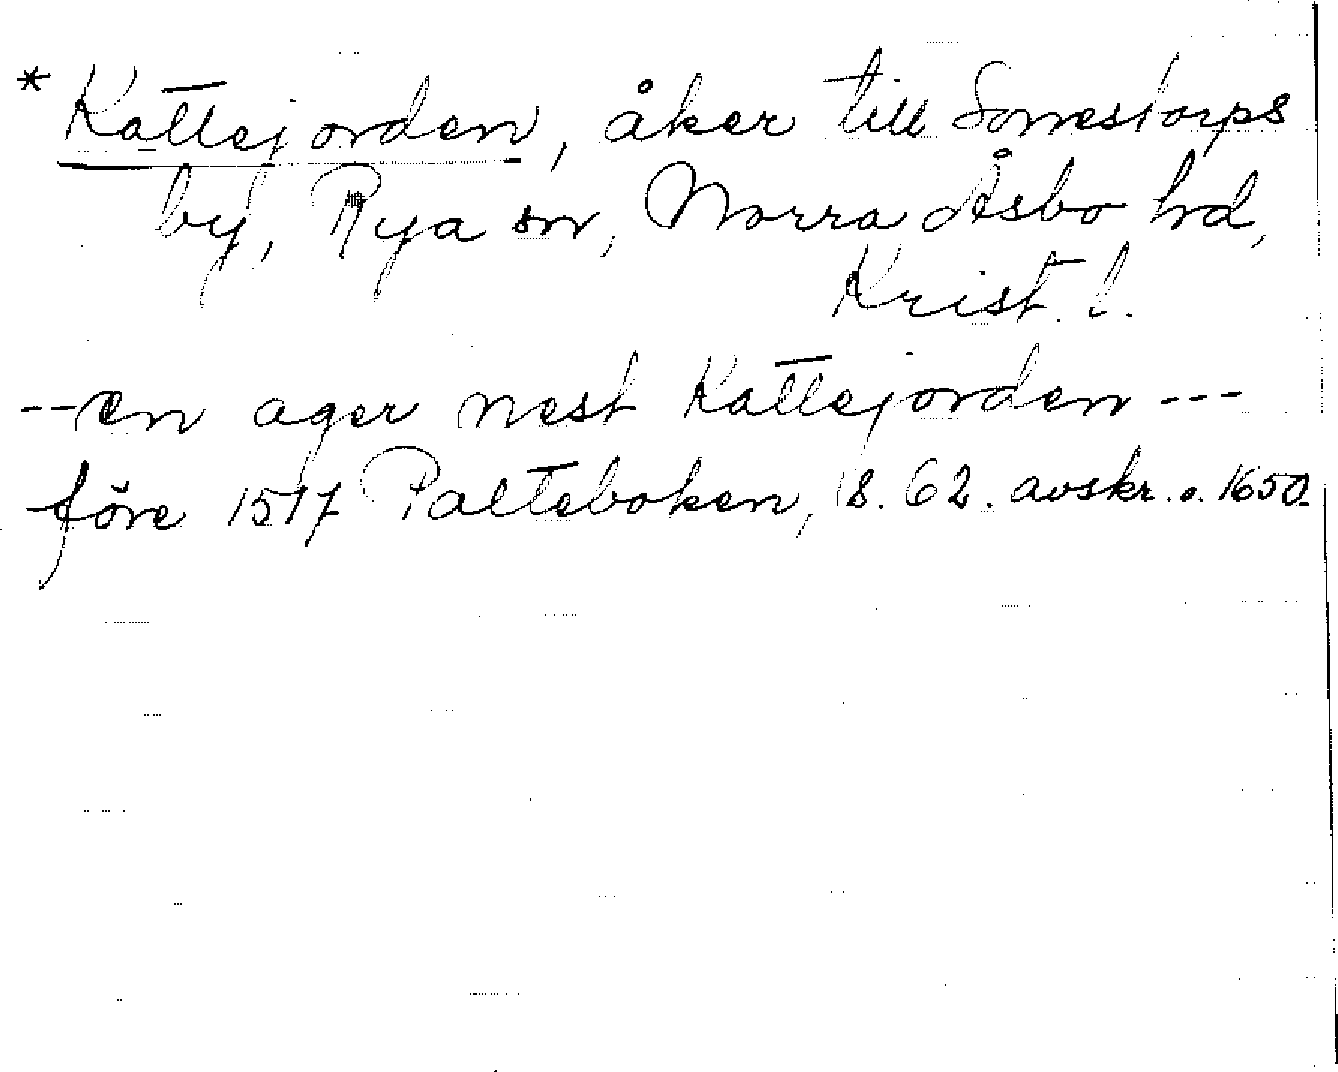 * Kattejorden, åker till Sonnestorps
by, Rya sn, Norra Åsbo hd,
Krist. l.
-- en ager nest Kattejorden ---
före 1517 Palteboken, s. 62. avskr. o. 1650.